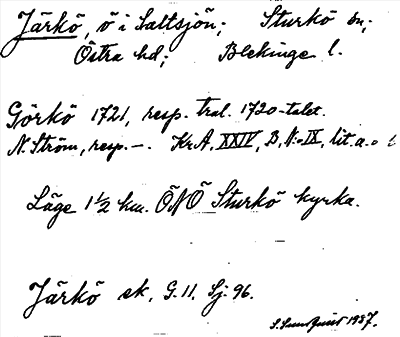 Järkö, ö i Saltsjön; Sturkö sn;
Östra hd; Blekinge l.
Görkö 1721, resp. tral. 1720-talet.
N. Ström, resp. –. KrA, XXIV, B, N:o IX, lit. a.
Läge 1 1/2 km. ÖNÖ Sturkö kyrka.
Järkö ek, G. 11. Sj: 96.
1937.